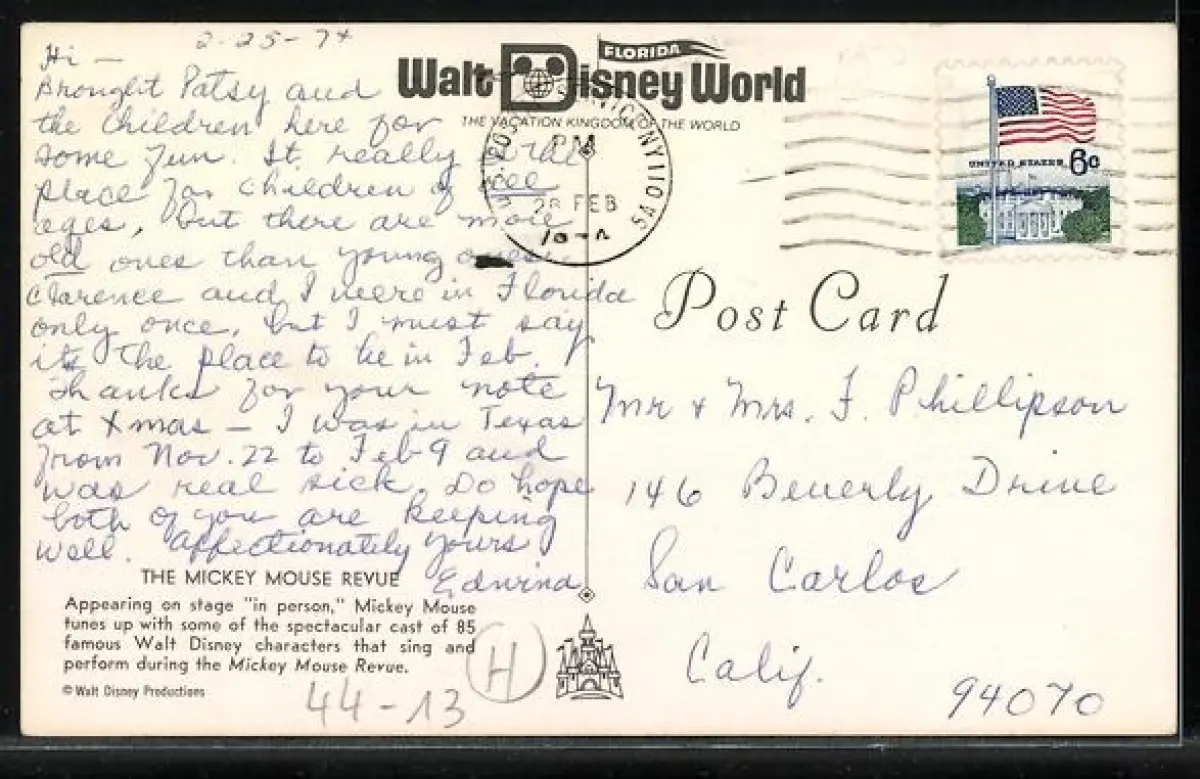 2-25-74
Hi —
Brought Patsy and
the Children here for
some fun. It really is the
place for children of all
ages, but there are more
old ones than young ones.
Clarence and I were in Florida
only once, but I must say
its the place to be in Feb.
Thanks for your note
at Xmas — I was in Texas
from Nov. 22 to Feb 9 and
was real sick. Do hope
both of you are keeping
well. Affectionately yours
Edwina
THE MICKEY MOUSE REVUE
Appearing on stage "in person," Mickey Mouse
tunes up with some of the spectacular cast of 85
famous Walt Disney characters that sing and
perform during the Mickey Mouse Revue.
© Walt Disney Productions
44-13
H
FLORIDA
Walt Disney World
THE VACATION KINGDOM OF THE WORLD
PM
28 FEB
UNITED STATES 6c
Post Card
Mr & Mrs. F. Phillipson
146 Beverly Drive
San Carlos
Calif.
94070